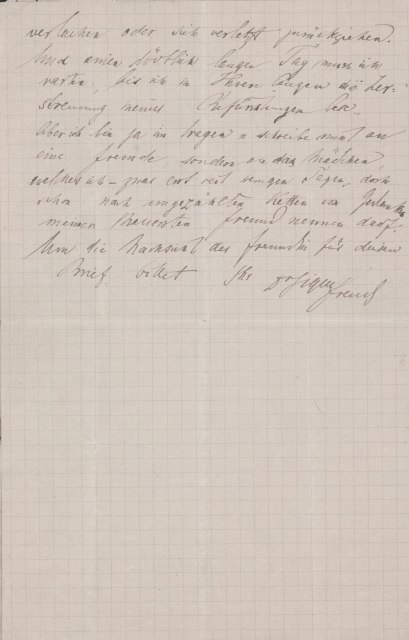 verlachen oder sich verletzt zurückziehen.
Und einen köstlich langen Tag muss ich
warten, bis ich in Ihren Augen die Zer-
streuung meiner Befürchtungen lese.
Aber ich bin ja im Segen u schreibe nicht an
eine fremde, sondern an das Mädchen
welches ich – zwar erst seit wenigen Tagen, doch
schon nach ungezählten Ketten von Gedanken
meinen teuersten Freund nennen darf.
Um die Nachsicht der Freundin für diesen
Brief bittet Ihr Dr Sigm
Freud